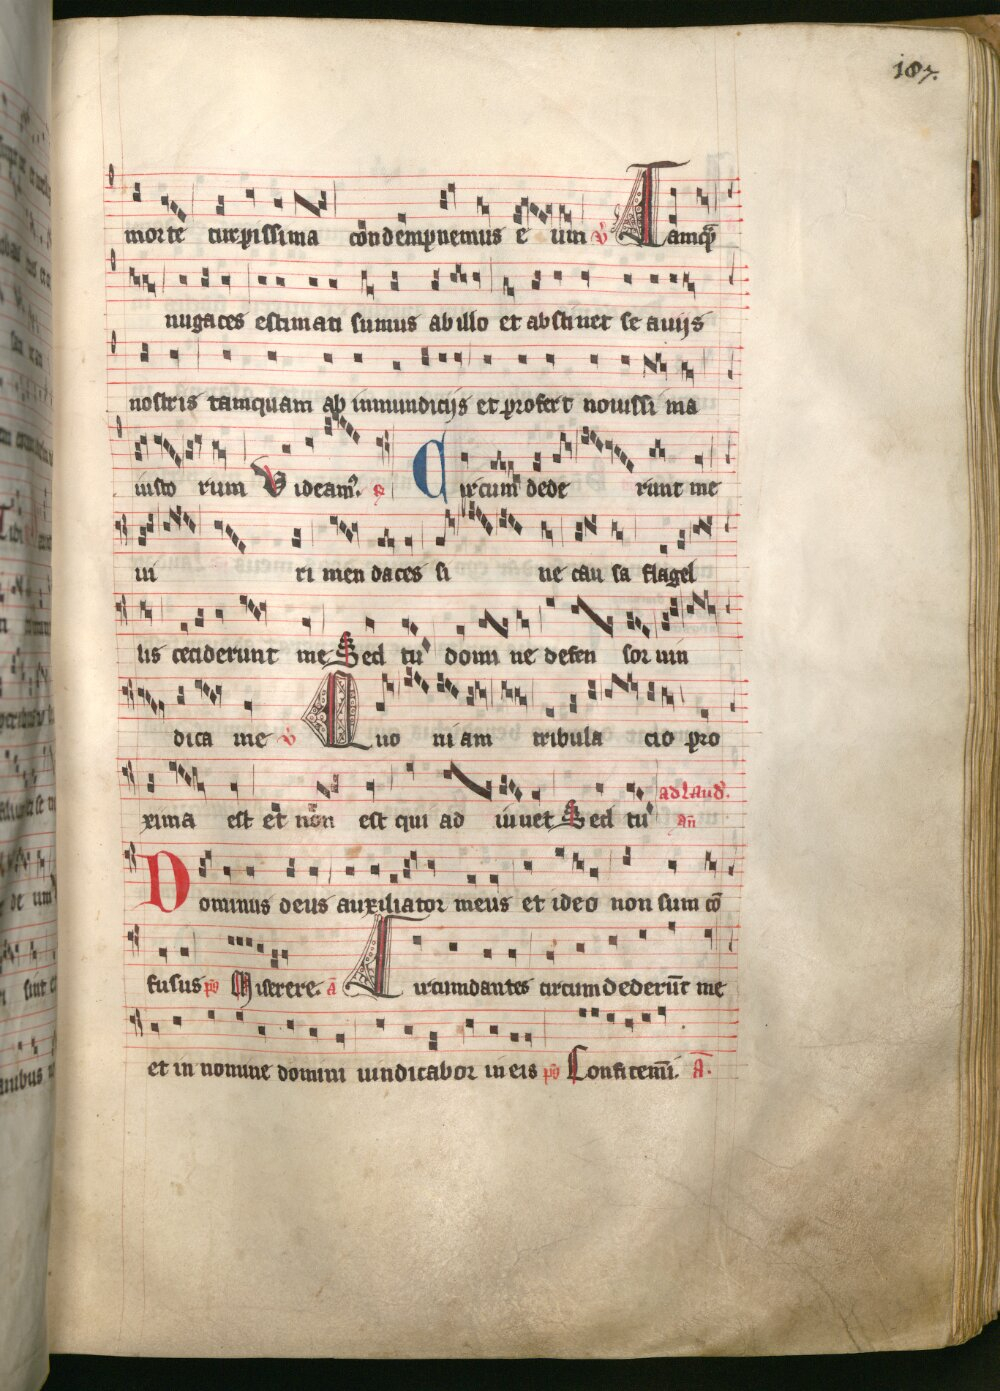 187.
morte turpissima condempnemus e um ℣ Tamqᷓ
nugaces estimati sumus ab illo et abstinet se a uijs
nostris tamquam ab inmundicijs et profert nouissi ma
iusto rum Videam⁹. ℟ Circum dede runt me
ui ri men daces si ne cau sa flagel
lis ceciderunt me Sed tu domi ne defen sor uin
dica me ℣ Quo ni am tribula cio pro
xima est et non est qui ad iuuet Sed tu ad laud̾.
an̄
Dominus deus auxiliator meus et ideo non sum cō
fusus ps̄ Miserere. ā Circumdantes circumdederūt me
et in nomine domini uindicabor in eis ps̄ Confitemī. A̅.